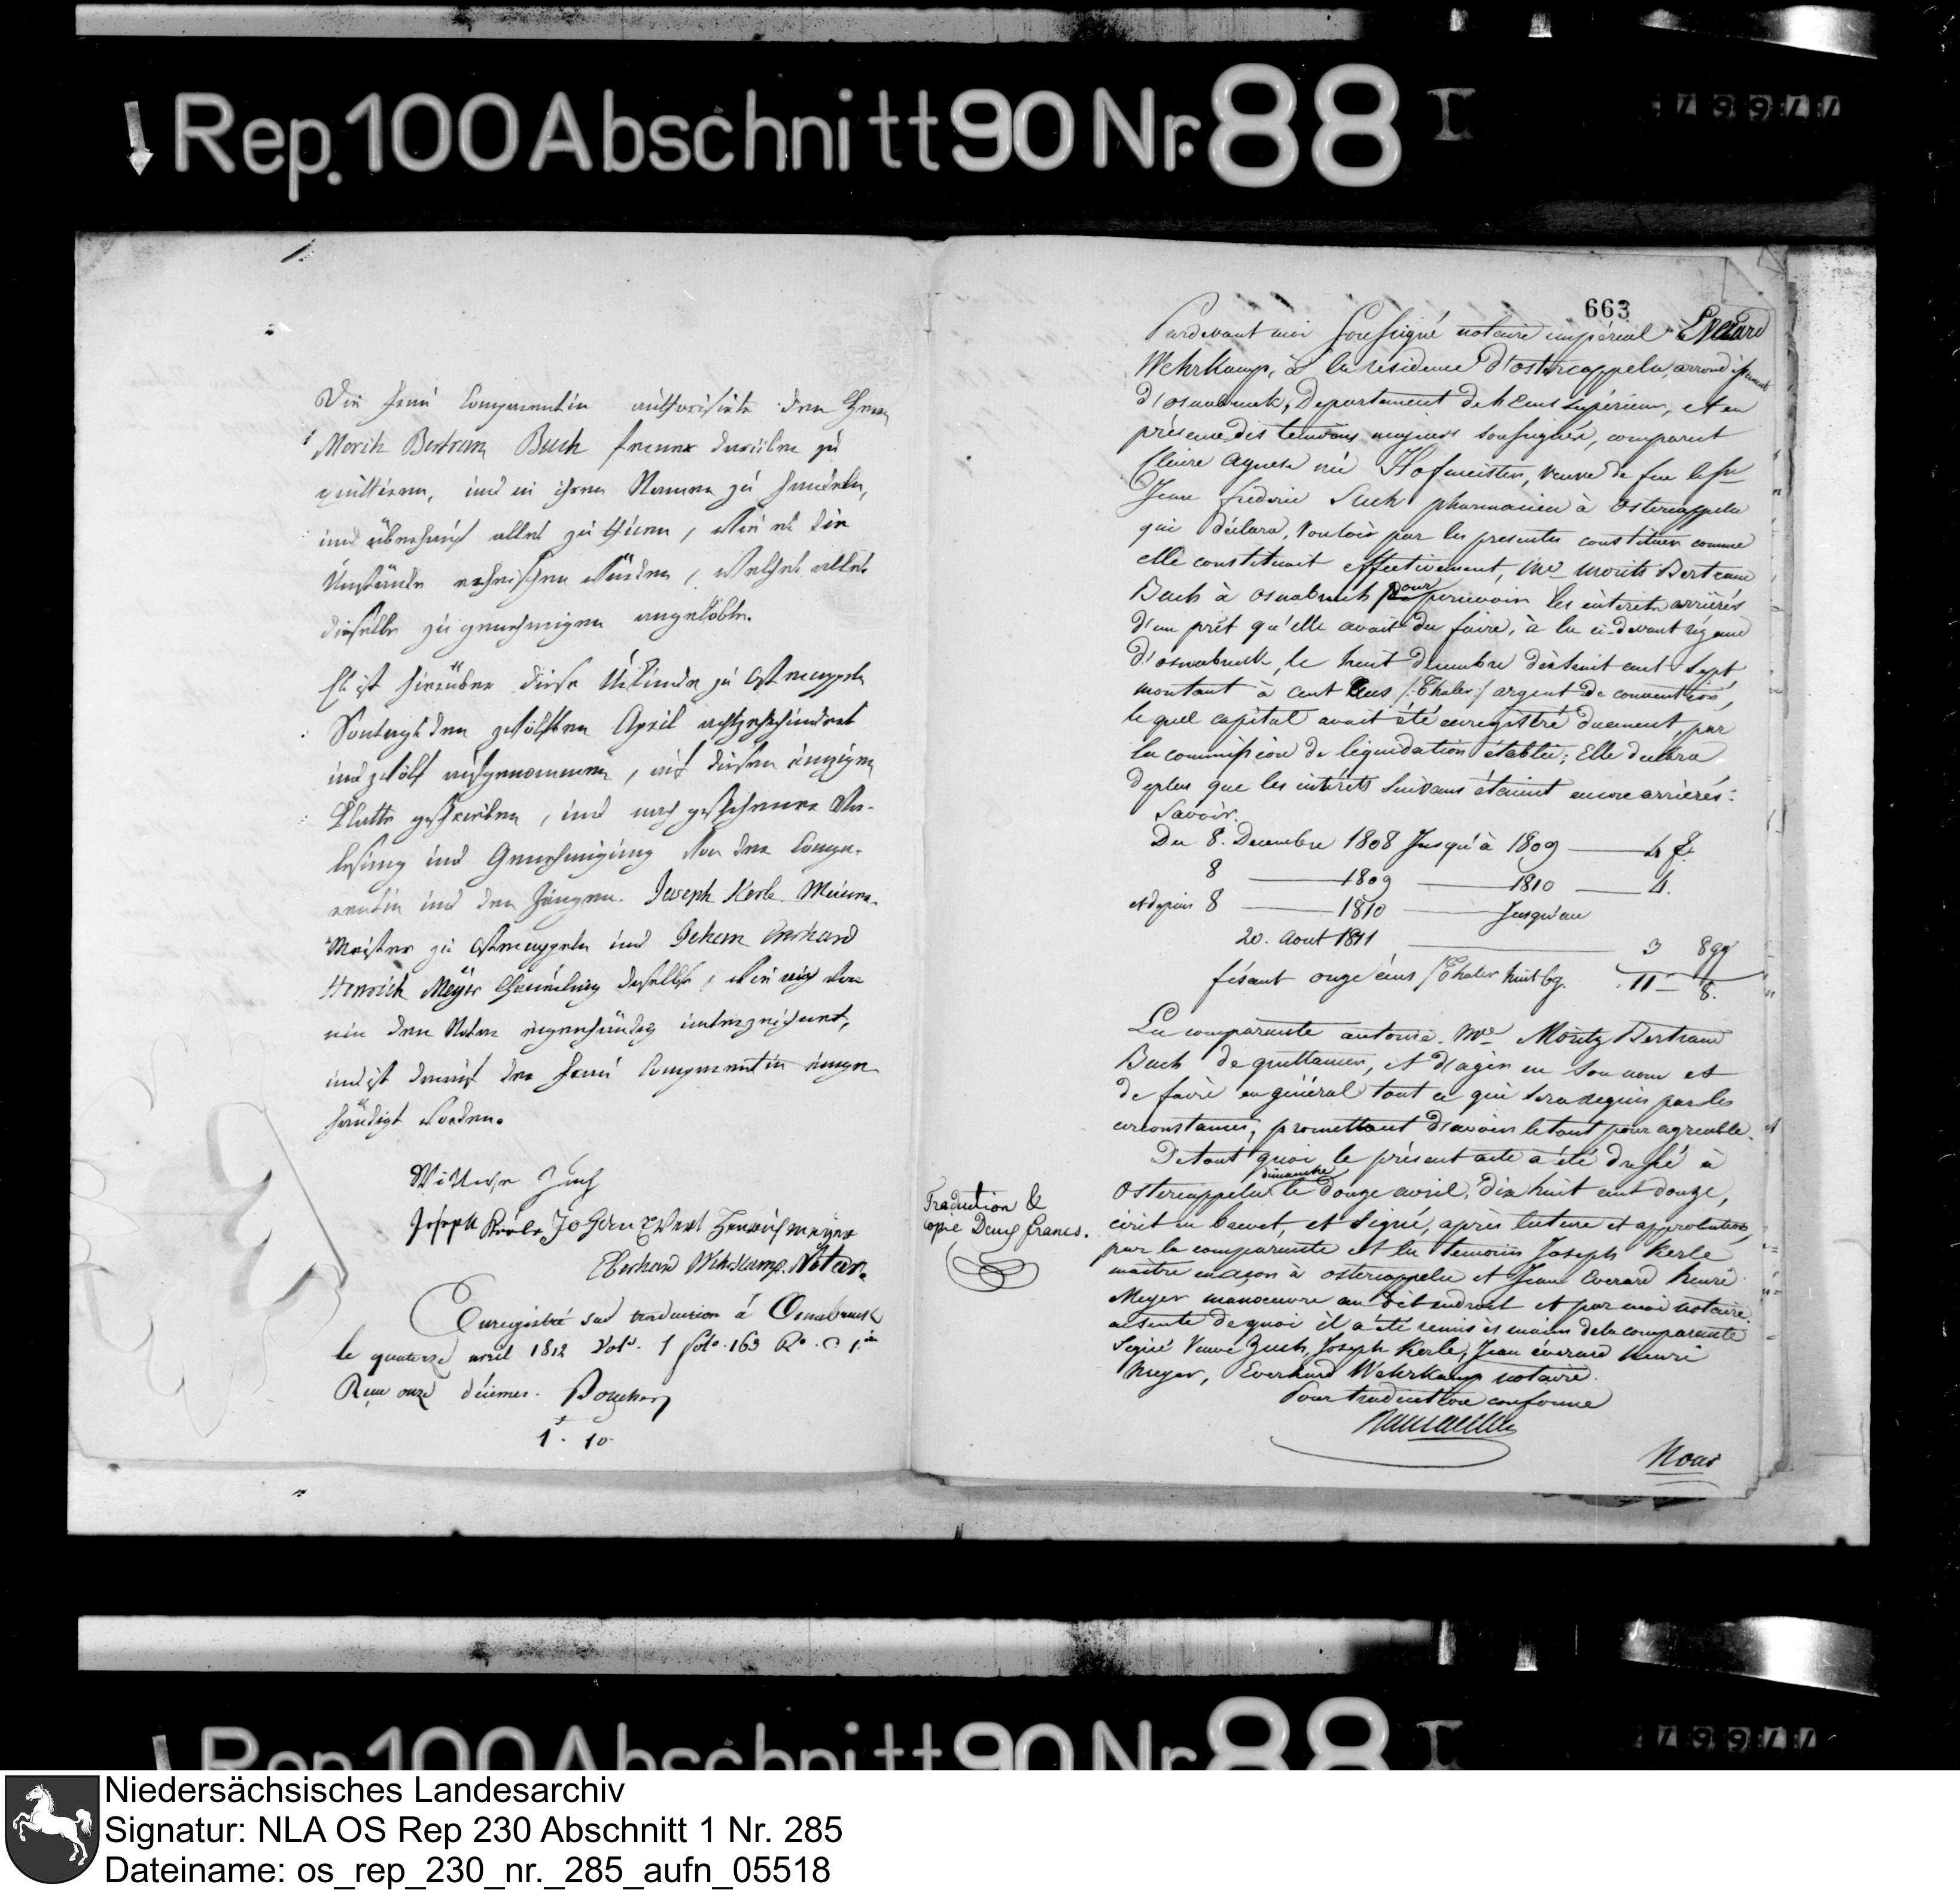 Rep. 100 Abschnitt 90 Nr. 88 I
Die Frau Comparentin authorisirte den Herrn
Moritz Bertram Buch ferner darüber zu
quittiren, und in ihrem Namen zu handeln,
und überhaupt alles zu thun, wie es die
Umstände erheischen würden, welches alles
dieselbe zu genehmigen angelobte.
Es ist hierüber diese Urkunde zu Ostercappeln
Sontags den zwölften April achtzehnhundert
und zwölf aufgenommen, auf diesem einzigen
Blatte geschrieben, und nach geschehener Vor-
lesung und Genehmigung von der Compa-
rentin und den Zeugen Joseph Kerle Mauer-
Meister zu Ostercappeln und Johan Everhard
Henrich Meÿer daselbst, wie auch von
mir dem Notar eigenhändig unterzeichnet,
und ist damit der Frau Comparentin einge-
händigt worden.
Wittwe Zuch
Joseph Kerle Johan Evert Henrich meÿer
Eberhard Wehrkamp. Notar.
Enregistré sad traduction à Osnabruck
le quatorze avril 1812 Vol. 1 folo. 163 Ro. C 1.
Recu onze décimes.
1. 10.
663
Pardevant moi Soussigné notaire impérial Everard
Wehrkamp, à la résidence d'ostercappeln, arrondissement
d'osnabruck, Departement de l'Ems supérieur, et en
présence des temoins majeurs soussignés, comparut
Claire Agnese née Hofmeister, veuve de feu le Sr
Jean frederic Zuch pharmacien à Ostercappeln
qui déclara, vouloir par les presentes constituer comme
elle constituoit effectivement, Mr moritz Bertram
Buch à osnabruck pour percevoir les intérets arriérés
d'un prêt qu'elle avait du faire, à la ci-devant régence
d'osnabruck, le huit decembre dixhuit cent sept,
montant à cent écus /:Thaler:/ argent de convention,
lequel capital avait été enregistré duement, par
la commission de liquidation établie; Elle declara
deplus que les intérêts suivans étaient encore arrièrés:
Savoir.
Du 8. Decembre 1808 Jusqu'à 1809 — 4
8 — 1809 — 1810 — 4.
et depuis 8 — 1810 — Jusqu'au
20. Aout 1811 — 3 8 gg
fésant onze écus /Thaler huit bg. 11 — 8.
La comparante autorise Mr Moritz Bertram
Buch de quittancer, et d'agir en son nom et
de faire en général tout ce qui sera requis par les
circonstances, promettant d'avoir le tout pour agreable.
De tout quoi le présent acte a été dressé à
Ostercappeln dimanche le douze avril, dix huit cent douze,
écrit en brevet, et signé, après lecture et approbation,
par la comparante et les temoins Joseph Kerle
maitre maçon à ostercappeln et Jean Everard henri
Meyer manoeuvre au dit endroit et par moi notaire.
ensuite de quoi il a été remis ès mains de la comparante
Signé Veuve Zuch, Joseph Kerle, Jean éverard henri
Meyer, Everhard Wehrkamp notaire.
Pour traduction conforme
Nous
Traduction &
copie Deux francs.
Rep. 100 Abschnitt 90 Nr. 88 I
Niedersächsisches Landesarchiv
Signatur: NLA OS Rep 230 Abschnitt 1 Nr. 285
Dateiname: os_rep_230_nr._285_aufn_05518